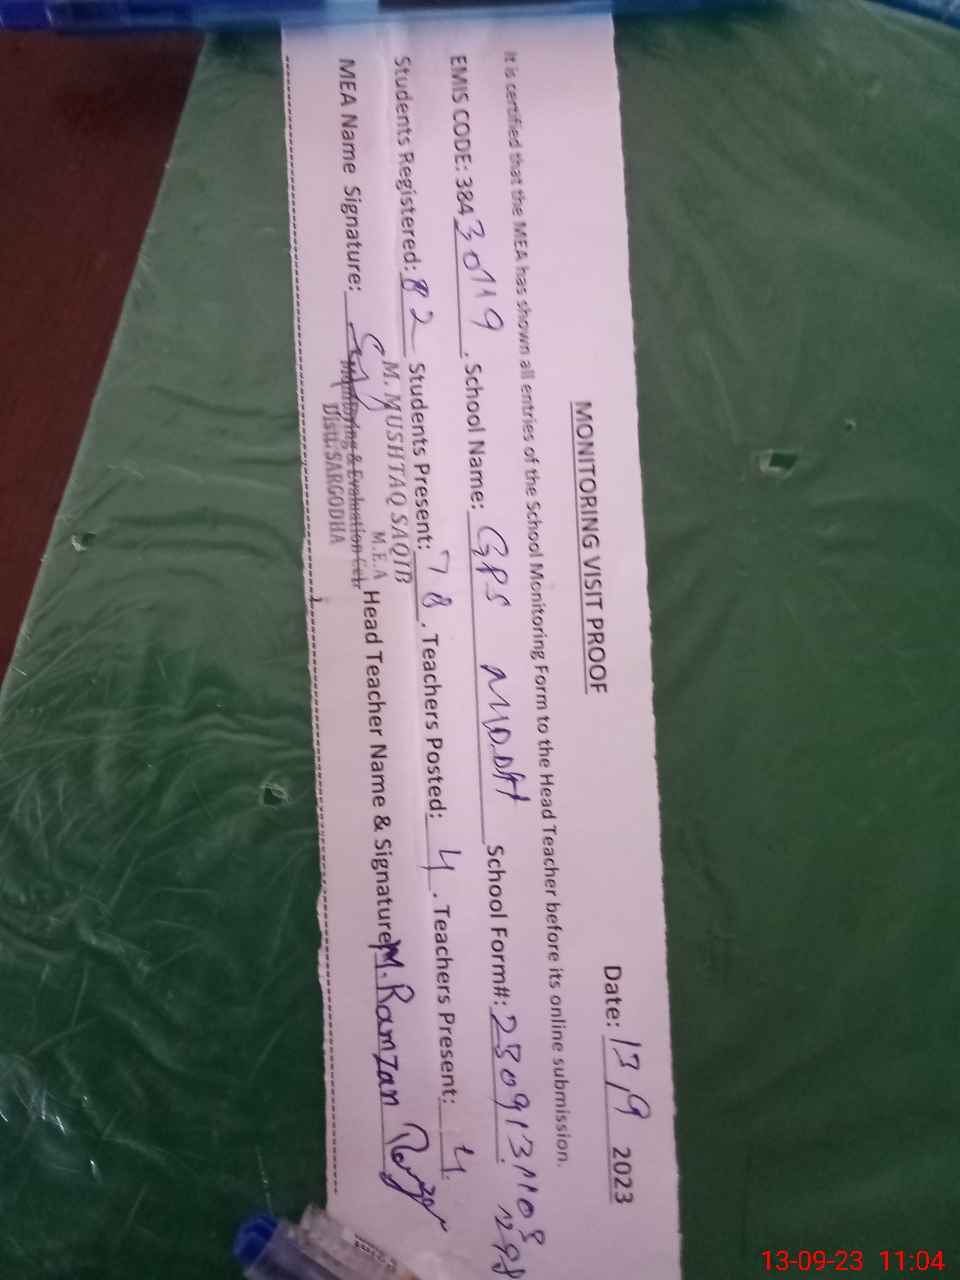 MONITORING VISIT PROOF
Date: 13/9 2023
It is certified that the MEA has shown all entries of the School Monitoring Form to the Head Teacher before its online submission.
EMIS CODE: 38430119. School Name: GPS School Form#:
Students Registered: 82 Students Present: 78. Teachers Posted: 4. Teachers Present: 4.
M. MUSHTAQ SAQIB
M.E.A
MEA Name Signature: Head Teacher Name & Signature M. Ramzan
Monitoring & Evaluation Cell
Distt. SARGODHA
13-09-23 11:04